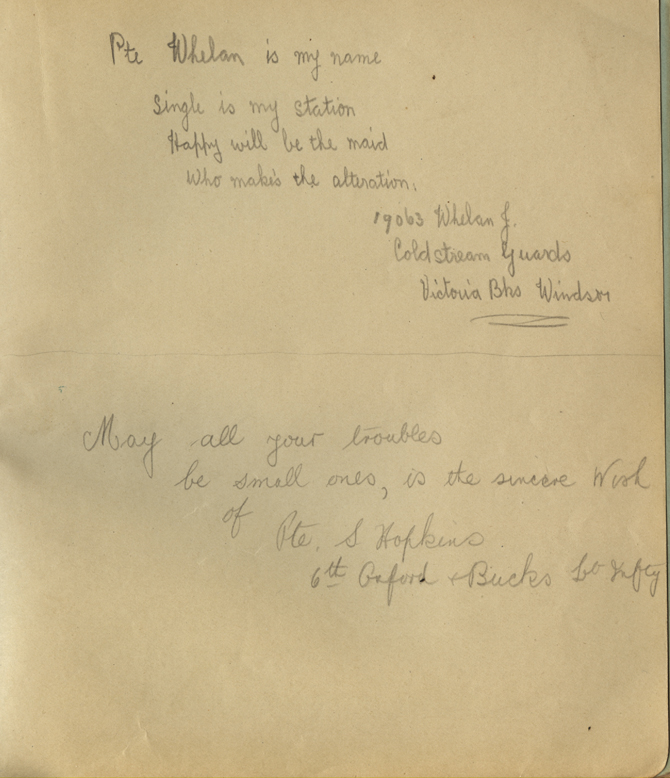 Pte Whelan is my name
Single is my station
Happy will be the maid
Who makes the alteration.
19063 Whelan J.
Coldstream Guards
Victoria Bks Windsor
May all your troubles
be small ones, is the sincere Wish
of
Pte. S Hopkins
6th Oxford & Bucks Lt Infty